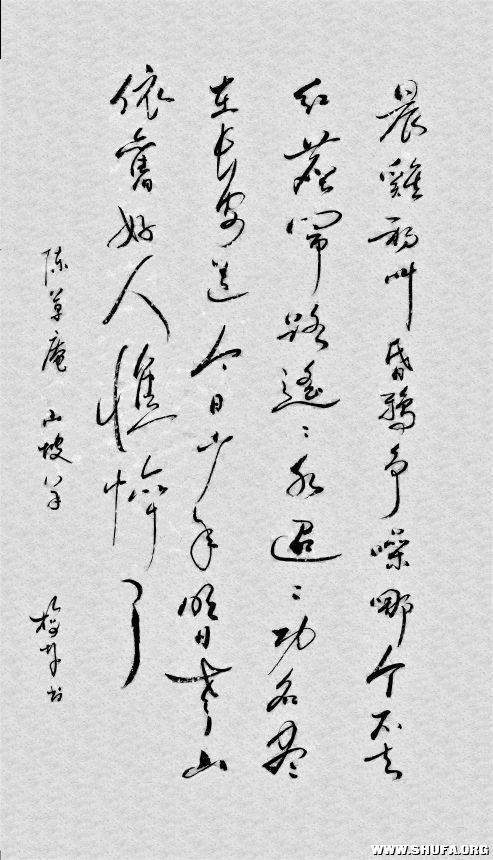 晨雞初叫昏鴉争噪哪个不去
红塵闹路遥〻水迢〻功名尽
在长安道今日少年明日老山
依舊好人憔悴了
陈草庵 山坡羊 书
WWW.SHUFA.ORG